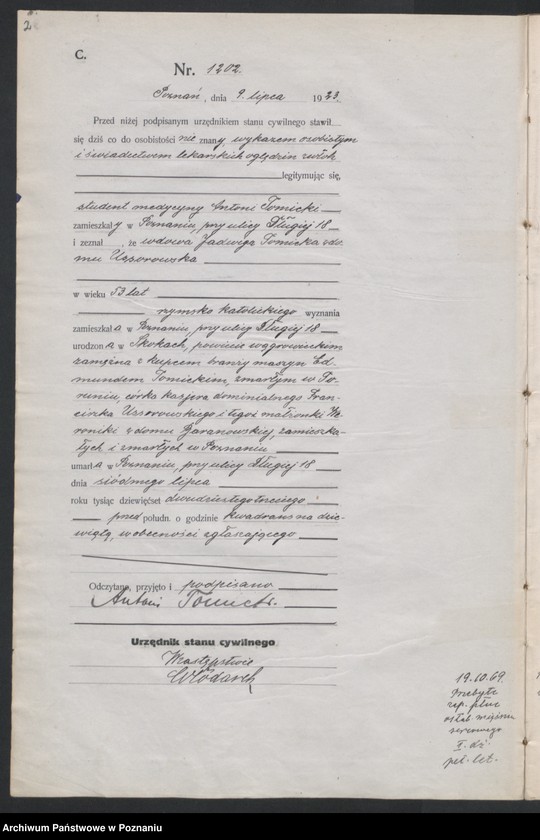 2
C.
Nr. 1202.
Poznań, dnia 9. lipca 1923.
Przed niżej podpisanym urzędnikiem stanu cywilnego stawił
się dziś co do osobistości nie znany, wykazem osobistym
i świadectwem lekarskich oględzin zwłok
legitymując się,
student medycyny Antoni Tomicki
zamieszkały w Poznaniu, przy ulicy Długiej 18
i zeznał, że wdowa Jadwiga Tomicka z do-
mu Uszorowska
w wieku 53 lat
rzymsko katolickiego wyznania
zamieszkała w Poznaniu, przy ulicy Długiej 18
urodzona w Skokach, powiecie wągrowieckim,
zamężna z kupcem branży maszyn Ed-
mundem Tomickim, zmarłym w To-
runiu, córka kasjera dominialnego Fran-
ciszka Uszorowskiego i tegoż małżonki We-
roniki z domu Baranowskiej, zamieszka-
łych i zmarłych w Poznaniu
umarła w Poznaniu, przy ulicy Długiej 18
dnia siódmego lipca
roku tysiąc dziewięćset dwudziestego trzeciego
przed połudn. o godzinie kwadrans na dzie-
wiątą, w obecności zgłaszającego
Odczytano, przyjęto i podpisano
Antoni Tomicki.
Urzędnik stanu cywilnego
W zastępstwie
Włodarek
19.10.69.
Przebyte
zap. płuc
osłab. mięśnia
sercowego
Archiwum Państwowe w Poznaniu